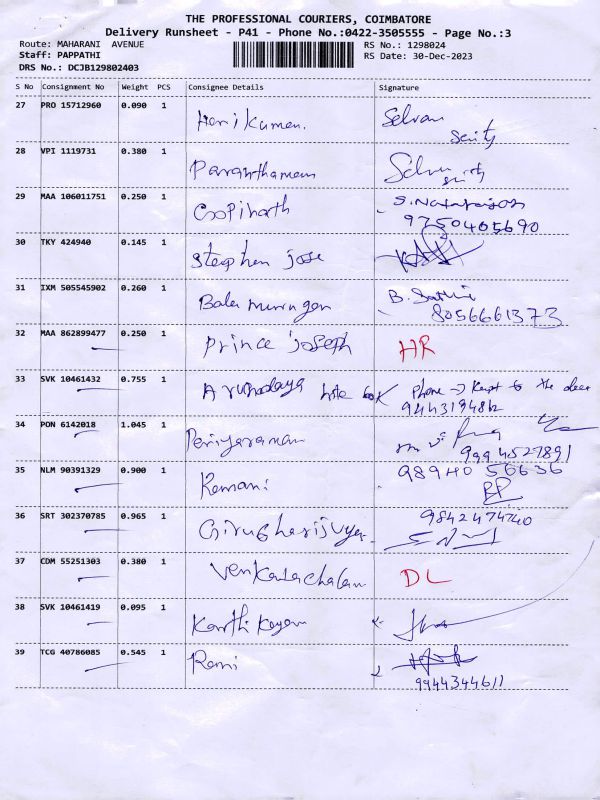 THE PROFESSIONAL COURIERS, COIMBATORE
Delivery Runsheet - P41 - Phone No.:0422-3505555 - Page No.:3
Route: MAHARANI AVENUE RS No.: 1298024
Staff: PAPPATHI RS Date: 30-Dec-2023
DRS No.: DCJB129802403
S No Consignment No Weight PCS Consignee Details Signature
27 PRO 15712960 0.090 1 Harikumar. Selvan
28 VPI 1119731 0.380 1
29 MAA 106011751 0.250 1 Gopinath S. Natarajan
9750405690
30 TKY 424940 0.145 1 Stephen jose
31 IXM 505545902 0.260 1 Bala murugan B. Sathi
8056661373
32 MAA 862899477 0.250 1 Prince joseph HR
33 SVK 10461432 0.755 1 Arunodaya Phone → Kept to the door
34 PON 6142018 1.045 1 Periyaraman
9994527891
35 NLM 90391329 0.900 1 Ramani 98940 56636
36 SRT 302370785 0.965 1 9842474740
37 CDM 55251303 0.380 1 Venkatachalam DL
38 SVK 10461419 0.095 1 Karthi Keyan
39 TCG 40786085 0.545 1 Rani
9944344611